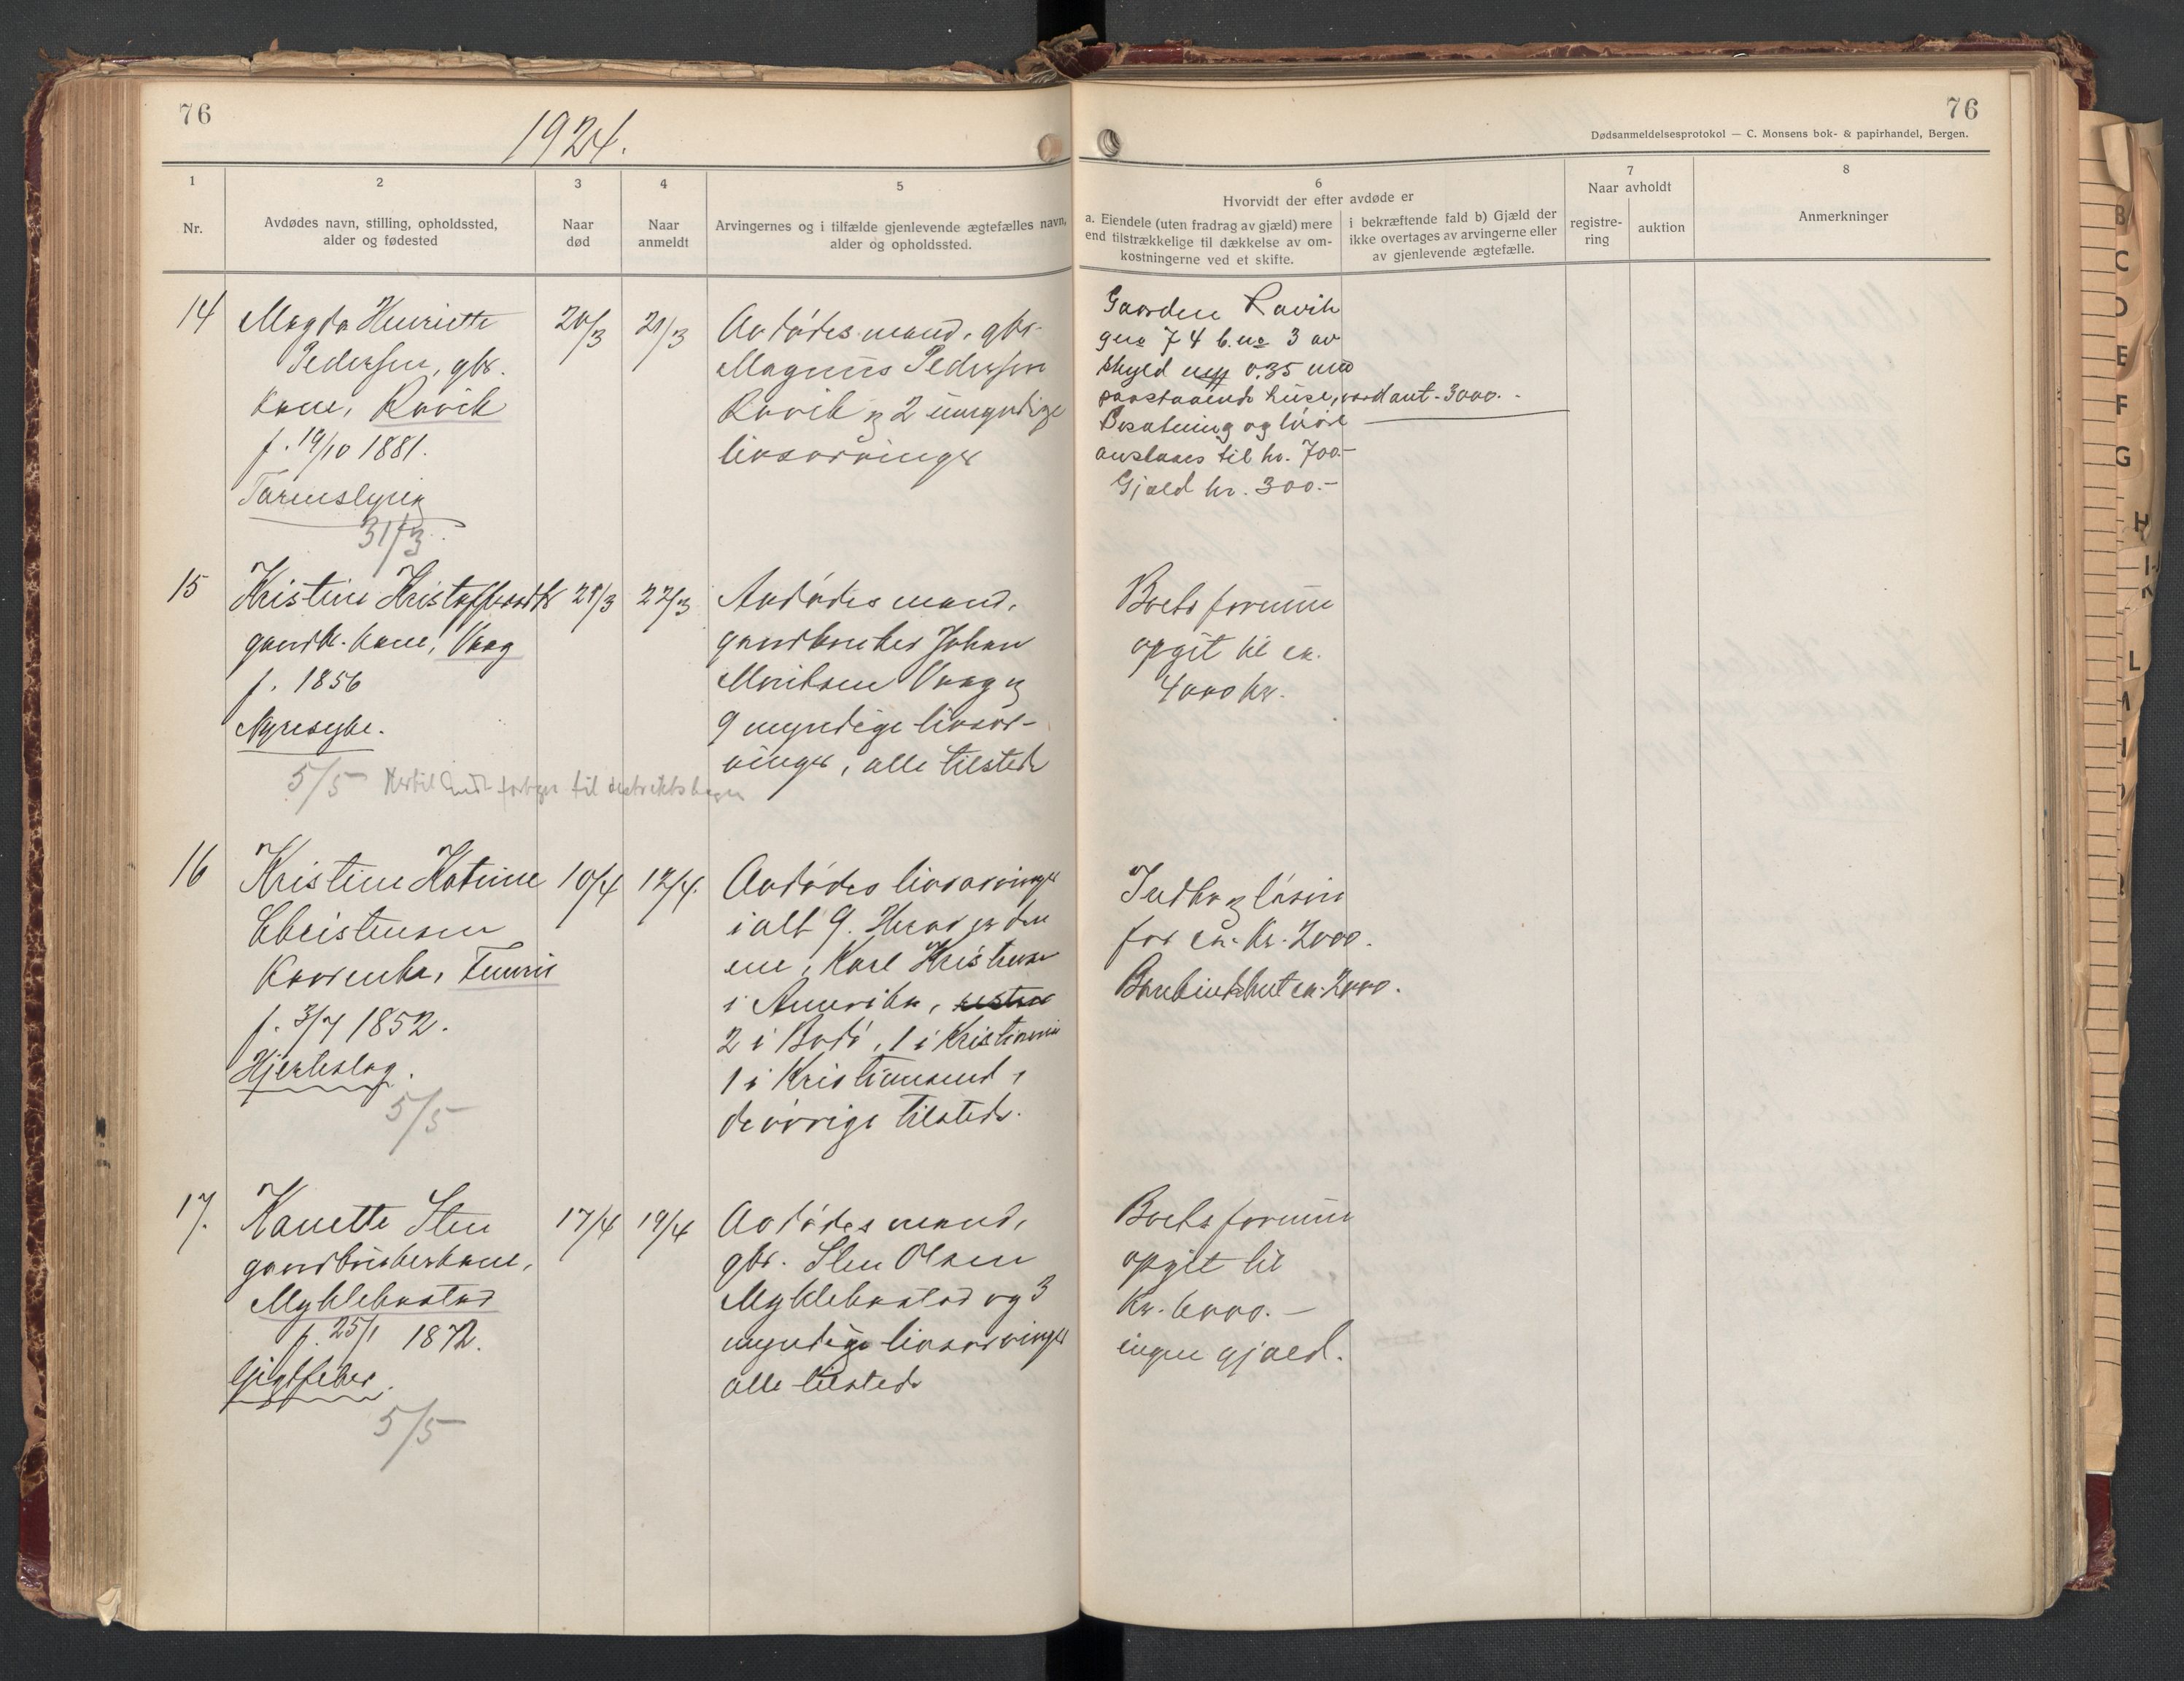 76
1924.
76
Dødsanmeldelsesprotokol — C. Monsens bok- & papirhandel, Bergen.
1
2
3
4
5
6
7
8
Nr.
Avdødes navn, stilling, opholdssted,
alder og fødested
Naar
død
Naar
anmeldt
Arvingernes og i tilfælde gjenlevende ægtefælles navn,
alder og opholdssted.
Hvorvidt der efter avdøde er
a. Eiendele (uten fradrag av gjæld) mere
end tilstrækkelige til dækkelse av om-
kostningerne ved et skifte.
i bekræftende fald b) Gjæld der
ikke overtages av arvingerne eller
av gjenlevende ægtefælle.
Naar avholdt
registre-
ring
auktion
Anmerkninger
14
Magda Henriette
Pedersen, gbr.
kone, Ravik
f. 19/10 1881.
Tarmslyng
31/3
20/3
21/3
Avdødes mand, gbr.
Magnus Pedersen
Ravik og 2 umyndige
livsarvinger
Gaarden Ravik
gno 74 b.no 3 av
skyld 0,35 med
paastaaende huse, værd ant. 3000.-
Besætning og løsøre
anslaaes til kr. 700.-
Gjæld kr. 300.-
15
Kristine Kristoffersdtr
gaardbr. kone, Vaag
f. 1856
Nyresyke.
5/5
til
21/3
22/3
Avdødes mand,
gaardbruker Johan
Meriksen Vaag og
9 myndige livsar-
vinger, alle tilstede
Boets formue
opgit til ca.
4000 kr.
16
Kristine Katrine
Christensen
Kaarenke, Tuvri
f. 3/7 1852.
Hjerteslag.
5/5
10/4
12/4.
Avdødes livsarvinger
i alt 9. Herav er den
ene, Karl Kristensen
i Amerika,
2 i Bodø, 1 i Kristiania
1 i Kristiansund,
de øvrige tilstede.
Indbo og løsøre
for ca. kr. 2000.
Bankindskut ca. 2000.
17.
Hanette Sten
gaardbrukerkone,
Myklebostad
f. 25/1 1872.
Gigtfeber.
5/5
17/4
19/4
Avdødes mand,
gbr. Sten Olsen
Myklebostad og 3
myndige livsarvinger
alle tilstede
Boets formue
opgit til
Kr. 6000.-
ingen gjæld.
B
C
D
E
F
G
H
L